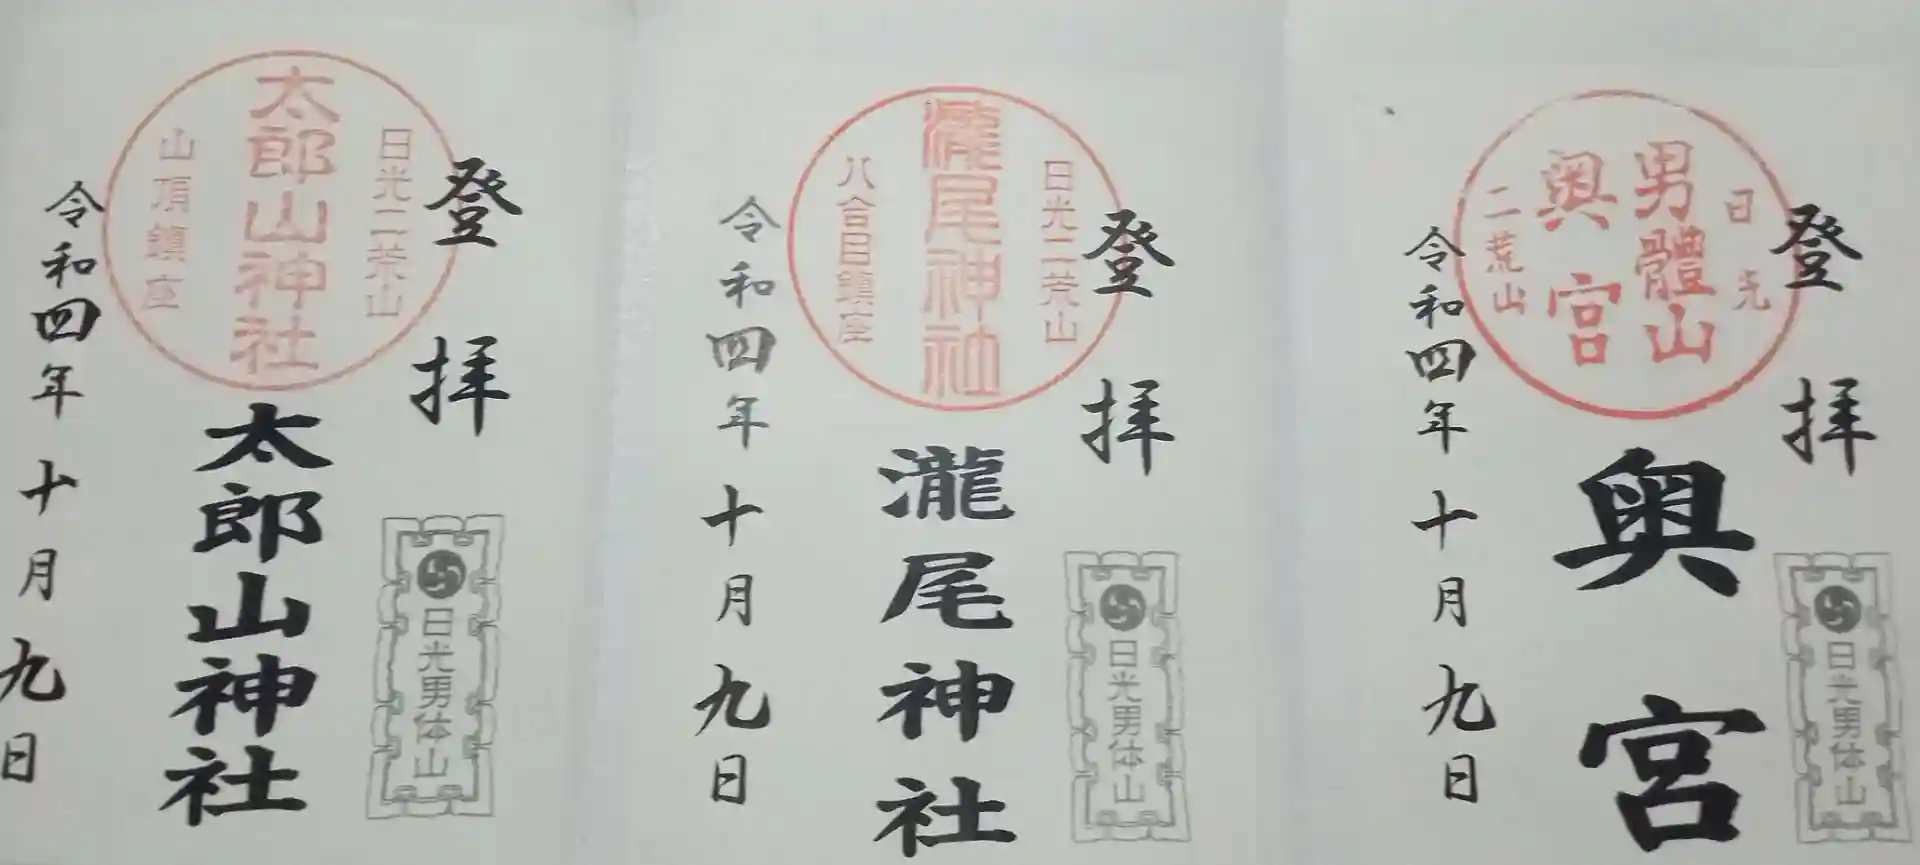 登拝
日光二荒山
男體山
奥宮
日光
二荒山
奥宮
日光男体山
令和四年十月九日
登拝
日光二荒山
瀧尾神社
八合目鎮座
瀧尾神社
日光男体山
令和四年十月九日
登拝
日光二荒山
太郎山神社
山頂鎮座
太郎山神社
日光男体山
令和四年十月九日